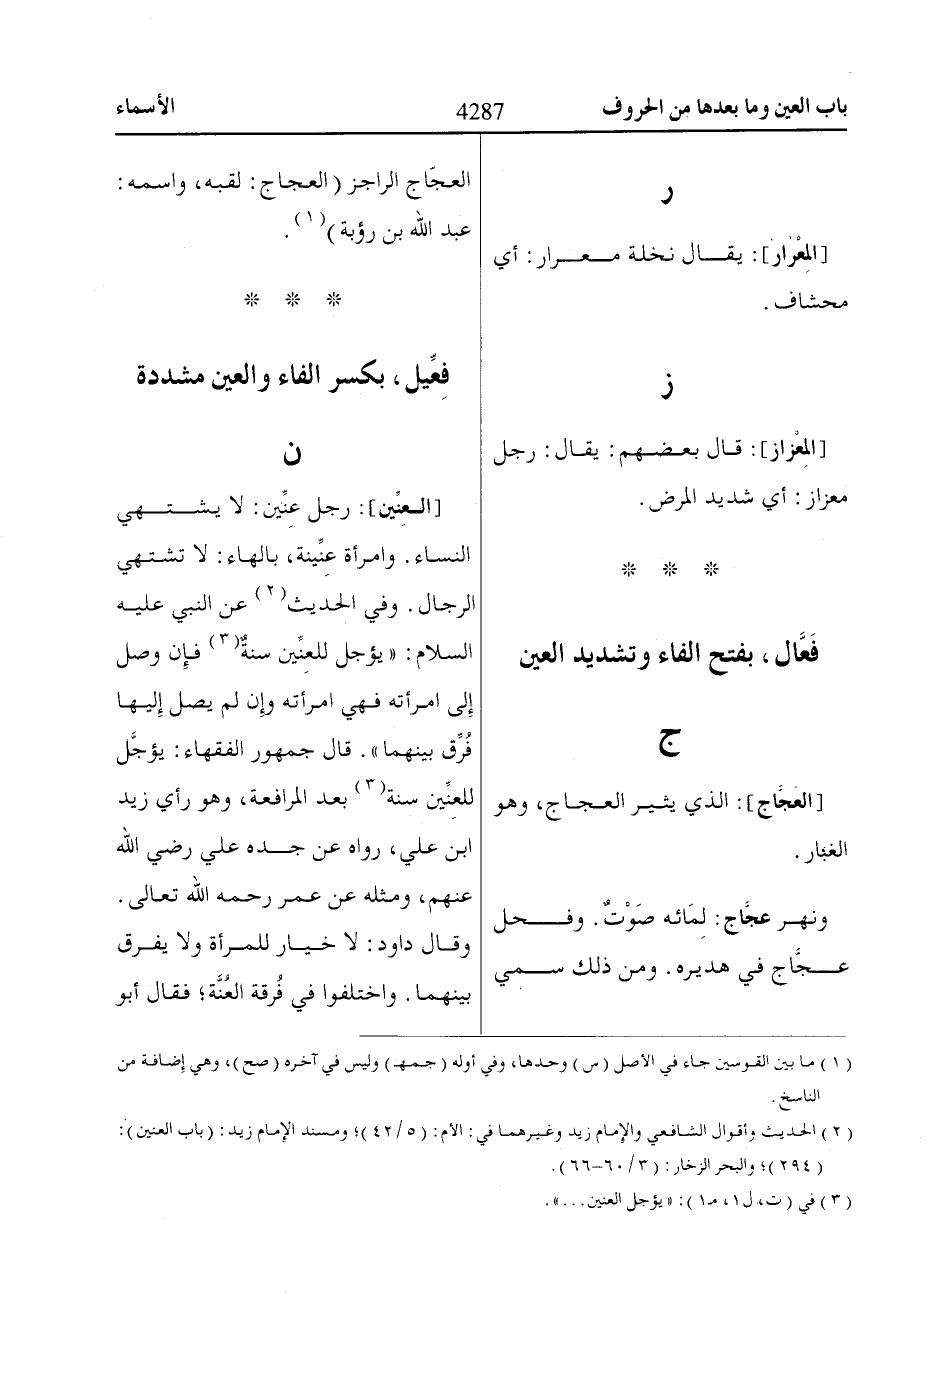 باب العين وما بعدها من الحروف 4287 الأسماء
ر
[المِعْرَار]: يقال نخلة معرار: أي
محشاف.
ز
[المِعْزاز]: قال بعضهم: يقال: رجل
معزاز: أي شديد المرض.
* * *
فَعَّال، بفتح الفاء وتشديد العين
ج
[العَجَّاج]: الذي يثير العجاج، وهو
الغبار.
ونهر عجَّاج: لمَائه صَوْتٌ. وفحل
عجَّاج في هديره. ومن ذلك سمي
العجَّاج الراجز (العجاج: لقبه، واسمه:
عبد الله بن رؤبة)(١).
* * *
فِعِّيل، بكسر الفاء والعين مشددة
ن
[العِنِّين]: رجل عِنِّين: لا يشتهي
النساء. وامرأة عِنِّينة، بالهاء: لا تشتهي
الرجال. وفي الحديث(٢) عن النبي عليه
السلام: «يؤجل للعِنِّين سنةٌ(٣) فإن وصل
إلى امرأته فهي امرأته وإن لم يصل إليها
فُرِّق بينهما». قال جمهور الفقهاء: يؤجَّل
للعِنِّين سنة(٣) بعد المرافعة، وهو رأي زيد
ابن علي، رواه عن جده علي رضي الله
عنهم، ومثله عن عمر رحمه الله تعالى.
وقال داود: لا خيار للمرأة ولا يفرق
بينهما. واختلفوا في فُرقة العُنَّة؛ فقال أبو
(١) ما بين القوسين جاء في الأصل (س) وحدها، وفي أوله (جمهـ) وليس في آخره (صح)، وهي إضافة من
الناسخ.
(٢) الحديث وأقوال الشافعي والإمام زيد وغيرهما في: الأم: (٥/٤٢)؛ ومسند الإمام زيد: (باب العنين):
(٢٩٤)؛ والبحر الزخار: (٣/٦٠-٦٦).
(٣) في (ت، ل١، م١): «يؤجل العنين...».